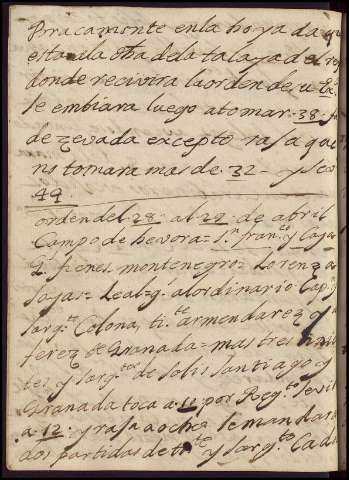 Bracamonte enla hoya da que
esta ala Otra dela talaya del rey
donde recivira la orden de
se embiara luego a tomar = 38 =
de zevada excepto rasa que
no tomara mas de = 32 - y seco
49
orden del = 28 = al = 29 = de abril
Campo de hevora = Sn franco y Casa
fienes, montenegro = Lorenzo
sayas = Leal = al ordinario Capn
sargte Colona, tite armendarez y
ferez de Granada = mas tres
tes y sargtos de solis santiago y
Granada toca a = 11 por Regto sevill
a = 12 - y rasa a ocho se mandara
aos partidas de tite y sargto Cada